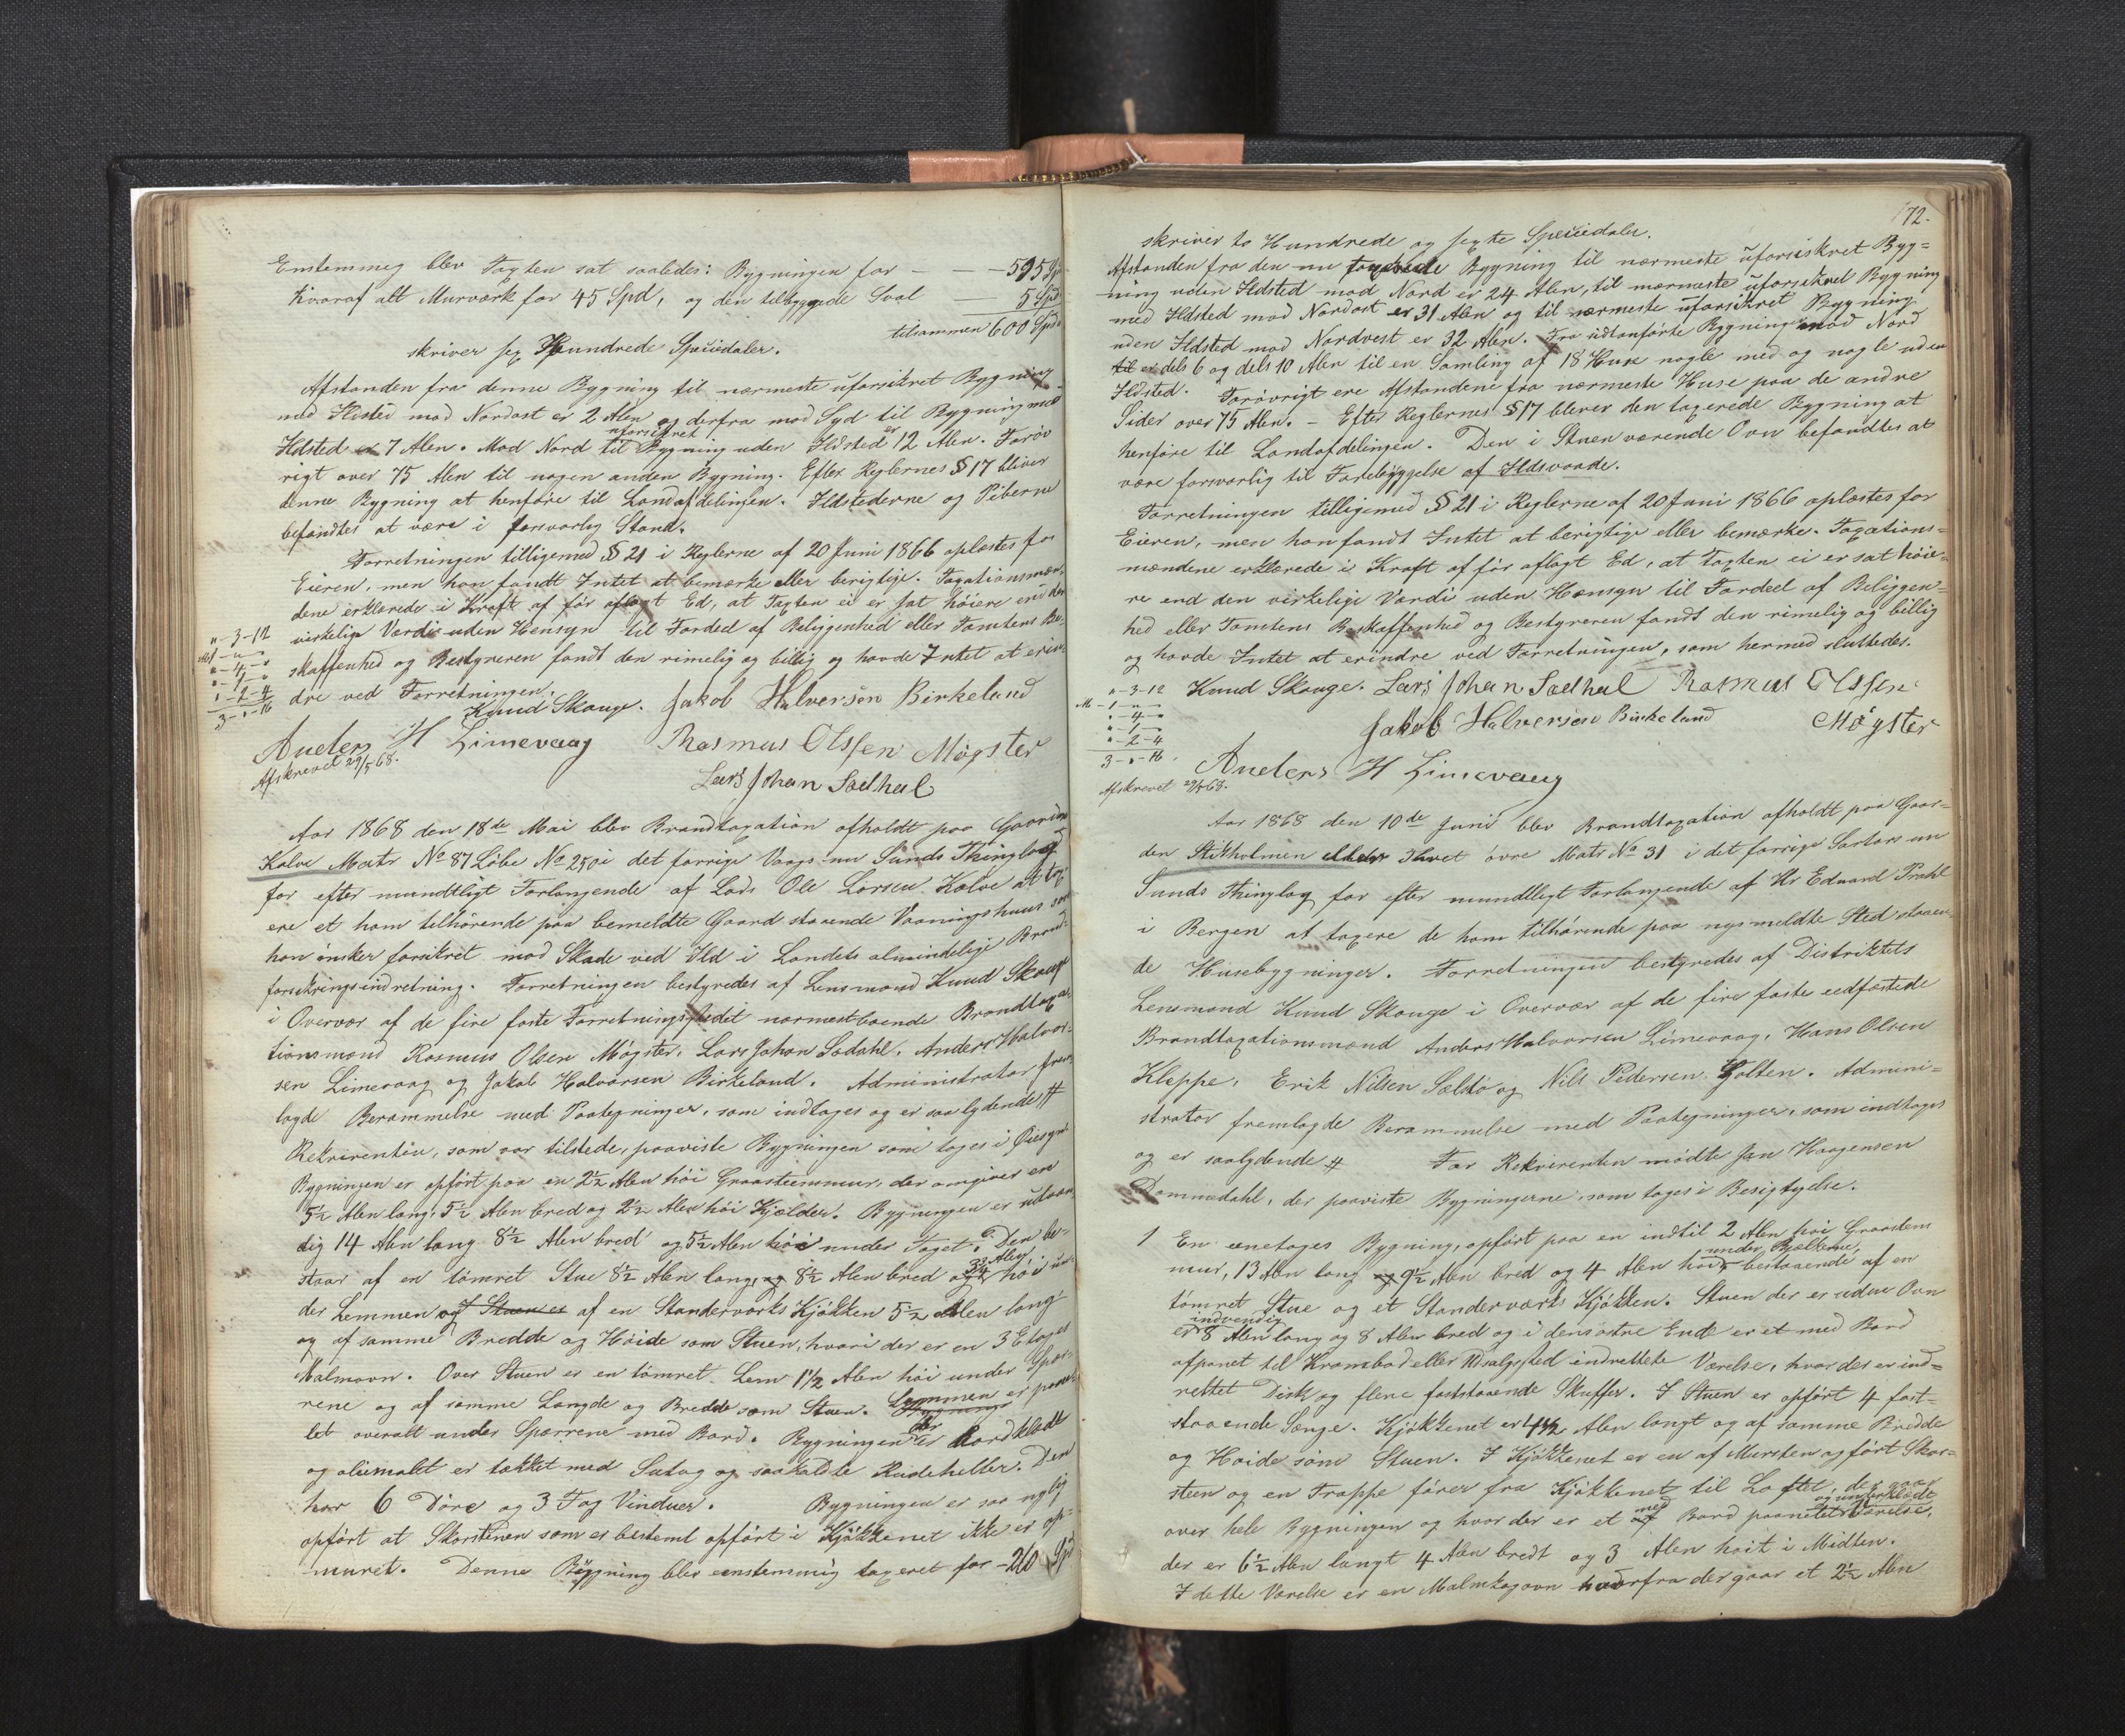 Enstemmig blev Taxten sat saaledes: Bygningen for – – – 595 Spd
hvoraf alt Murværk for 45 Spd, og den tilbyggede Sval – 5 Spd
tilsammen 600 Spd
skriver sex Hundrede Speciedaler.
Afstanden fra denne Bygning til nærmeste uforsikret Bygning
med Ildsted mod Nordost er 2 Alen og derfra mod Syd til Bygning med
Ildsted er 7 Alen. Mod Nord til uforsikret Bygning uden Ildsted er 12 Alen. Forøv
rigt over 75 Alen til nogen anden Bygning. Efter Reglernes § 17 bliver
denne Bygning at henføre til Landafdelingen. Ildstederne og Piberne
befandtes at være i forsvarlig Stand.
Forretningen tilligemed § 21 i Reglerne af 20 Juni 1866 oplæstes for
Eieren, men han fandt Intet at bemærke eller berigtige. Taxationsmæn-
dene erklærede i Kraft af før aflagt Ed, at Taxten ei er sat høiere end den
virkelige Værdi uden Hensyn til Fordeel af Beliggenhed eller Tomtens Be-
skaffenhed og Bestyreren fandt den rimelig og billig og havde Intet at erin-
dre ved Forretningen.
" - 3 - 12
- 1 - " -
" - 4 - "
" - 1 - "
" - 2 - 4
3 - " - 16
Knud Skauge. Jakob Halversøn Birkeland
Anders H Limevaag Rasmus Olssen Møgster
Afskrevet 29/5 68.
Lars Johan Sædhal
Aar 1868 den 18de Mai blev Brandtaxation afholdt paa Gaarden
Kalve Matr No 87 Løbe No 250 i det forrige Vaags nu Sunds Thinglag
for efter mundtligt Forlangende af Lods Ole Larsen Kalve at tax-
ere et ham tilhørende paa bemeldte Gaard staaende Vaaningshuus som
han ønsker forsikret mod Skade ved Ild i Landets almindelige Brand-
forsikringsindretning. Forretningen bestyredes af Lensmand Knud Skauge
i Overvær af de fire faste Forretningsstedet nærmestboende Brandtaxa-
tionsmænd Rasmus Olsen Møgster, Lars Johan Sædahl, Anders Halvor-
sen Limevaag og Jakob Halvorsen Birkeland. Administrator frem-
lagde Berammelse med Paategninger, som indtages og er saa lydende #
Rekvirenten, som var tilstede, paaviste Bygningen som toges i Øiesyn
Bygningen er opført paa en 2½ Alen høi Graasteensmuur, der omgiver en
5½ Alen lang, 5½ Alen bred og 2½ Alen høi Kjælder. Bygningen er udvæn-
dig 14 Alen lang 8½ Alen bred og 5½ Alen høi under Taget. Den be-
staar af en tømret Stue 8½ Alen lang, og 8½ Alen bred og 3¾ Alen høi un-
der Lemmen og I Stuen er af en Standerværks Kjøkken 5½ Alen lang
og af samme Bredde og Høide som Stuen, hvori der er en 3 Etages
Malmovn. Over Stuen er en tømret Lem 1½ Alen høi under Spær-
rene og af samme Længde og Bredde som Stuen. Bygnings Lemmen er pane-
let overalt under Spærrene med Bord. Bygningen der er bordklædt
og oliemalet er tækket med Sutag og saakaldte Rudeheller. Den
har 6 Døre og 3 Fag Vinduer. Bygningen er saa nylig
opført at Skorstenen som er bestemt opført i Kjøkkenet ikke er op-
muret. Denne Bygning blev eenstemmig taxeret for – 260 Spd
72.
skriver to Hundrede og sexti Speciedaler.
Afstanden fra den nu taxerede Bygning til nærmeste uforsikret Byg=
ning uden Ildsted mod Nord er 24 Alen, til nærmeste uforsikret Bygning
med Ildsted mod Nordost er 31 Alen og til nærmeste uforsikret Bygning
uden Ildsted mod Nordvest er 32 Alen. Fra udtanførte Bygning mod Nord
til er dels 6 og dels 10 Alen til en Samling af 18 Huse nogle med og nogle uden
Ildsted. Forøvrigt ere Afstandene fra nærmeste Huse paa de andre
Sider over 75 Alen. – Efter Reglernes § 17 bliver den taxerede Bygning at
henføre til Landafdelingen. Den i Stuen værende Ovn befandtes at
være forsvarlig til Forebyggelse af Ildsvaade.
Forretningen tilligemed § 21 i Reglerne af 20 Juni 1866 oplæstes for
Eieren, men han fandt Intet at berigtige eller bemærke. Taxations=
mændene erklærede i Kraft af før aflagt Ed, at Taxten ei er sat høie-
re end den virkelige Værdi uden Hensyn til Fordeel af Beliggen=
hed eller Tomtens Beskaffenhed og Bestyreren fandt den rimelig og billig
og havde Intet at erindre ved Forretningen, som hermed sluttedes.
" - 3 - 12
- 1 - " -
" - 4 - "
" - 1 - "
" - 2 - 4
3 - " - 16.
Knud Skauge. Lars Johan Sædhal Rasmus Olssen
Jakob Halversen Birkeland Møgster
Anders H Limevaag
Afskrevet 29/5 68.
Aar 1868 den 10de Juni blev Brandtaxation afholdt paa Gaar=
den Stikholmen eller Thvet øvre Matr No 31 i det forrige Sartors nu
Sunds Thinglag for efter mundtligt Forlangende af Hr Eduard Prahl
i Bergen at taxere de ham tilhørende paa nysmeldte Sted staaen-
de Husebygninger. Forretningen bestyredes af Distriktets
Lensmand Knud Skauge i Overvær af de fire faste eedfæstede
Brandtaxationsmænd Anders Halvorsen Limevaag, Hans Olsen
Kleppe, Erik Nilsen Sældø og Nils Pedersen Golten. Admini=
strator fremlagde Berammelse med Paategninger, som indtages
og er saalydende # For Rekvirenten mødte Jan Haagensen
Dommedahl, der paaviste Bygningerne som toges i Besigtigelse.
1 En eenetages Bygning, opført paa en indtil 2 Alen høi Graastens
muur, 13 Alen lang og 9½ Alen bred og 4 Alen høi under Bjelkerne, bestaaende af en
tømret Stue og et Standerværks Kjøkken. Stuen der er uden Ovn
er indvendig 8 Alen lang og 8 Alen bred og i dens østre Ende er et med Bord
afpanet til Krambod eller Udsalgssted indrettete Værelse, hvor der er ind=
rettet Disk og flere faststaaende Skuffer. I Stuen er opført 4 fast=
staaende Senge. Kjøkkenet er 4½ Alen langt og af samme Bredde
og Høide som Stuen. I Kjøkkenet er en af Mursten opført Skor=
steen og en Trappe fører fra Kjøkkenet til Loftet, der gaar
over hele Bygningen og hvor der er et af med Bord paanelet og underklædt Værelse,
der er 6½ Alen langt 4 Alen bredt og 3 Alen høit i Midten.
I dette Værelse er en Malmkogovn hvorfra der gaar et 2½ Alen